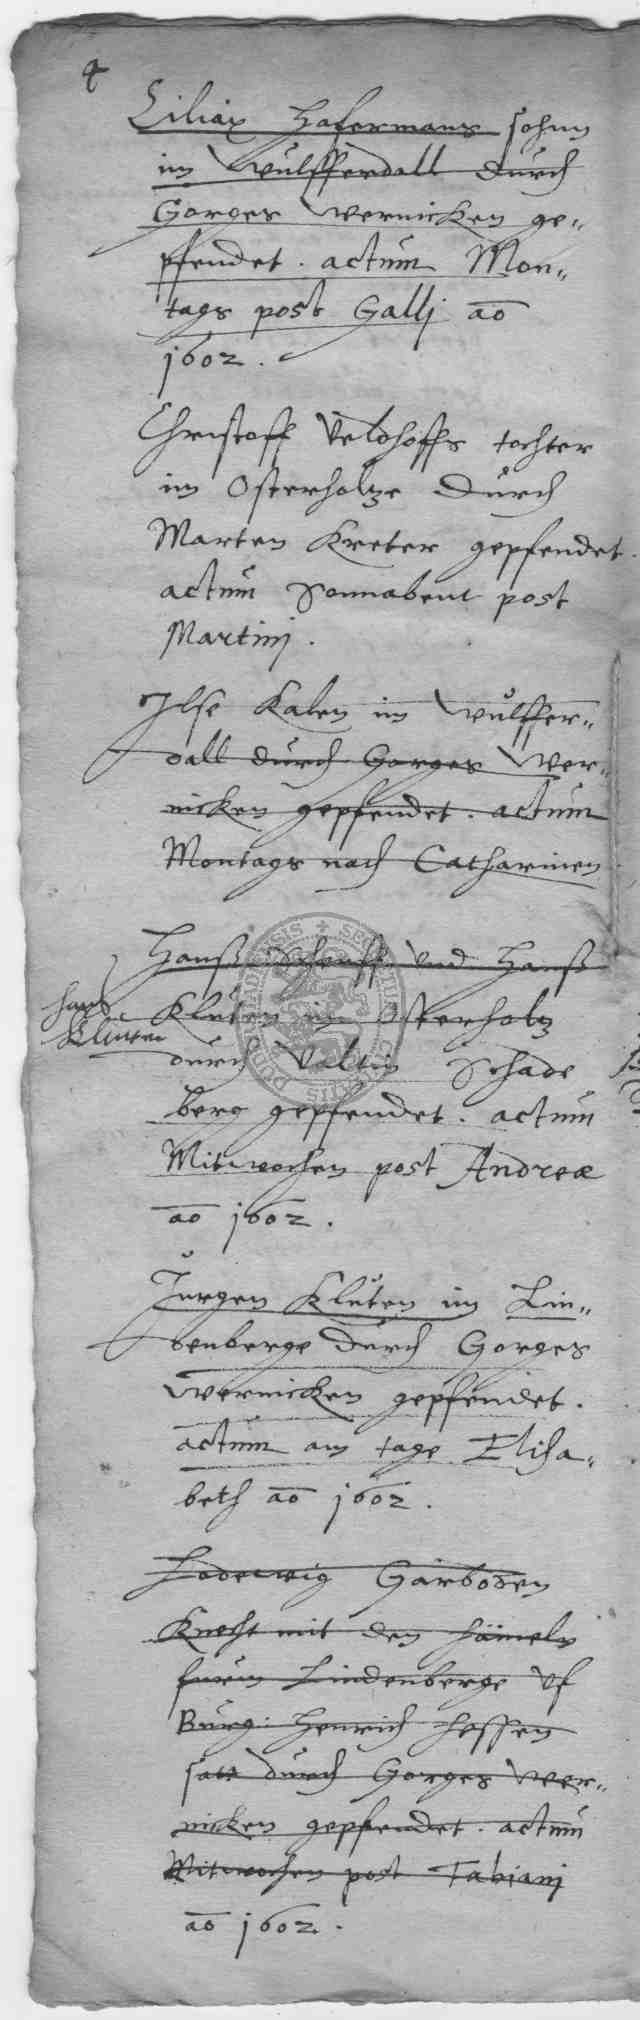 4
Ciliax Hafermans sohnn
im Wulfferdall durch
Gorges Wernicken ge-
pfendet. actum Mon-
tags post Gallj ao
1602.
Christoff Veldhoffs tochter
im Osterholtze durch
Marten Kreter gepfendet.
actum Sonnabent post
Martinj.
Ilse Kalen im Wulffer-
dall durch Gorges Wer-
nicken gepfendet. actum
Montags nach Catharinen
Hanß und Hanß
Kluten im Osterholtz
hans
Kluten
durch Valtin Schade
berg gepfendet. actum
Mitwochen post Andreæ
ao 1602.
Jurgen Kluten im Lin-
denberge durch Gorges
Wernicken gepfendet.
actum am tage Elisa-
beth ao 1602.
Lodewig Garbosen
Knecht mit den hameln
furm Lindenberge vf
Burg: Henrich Hessen
satt durch Gorges Wer-
nicken gepfendet. actum
Mitwochen post Fabianj
ao 1602.